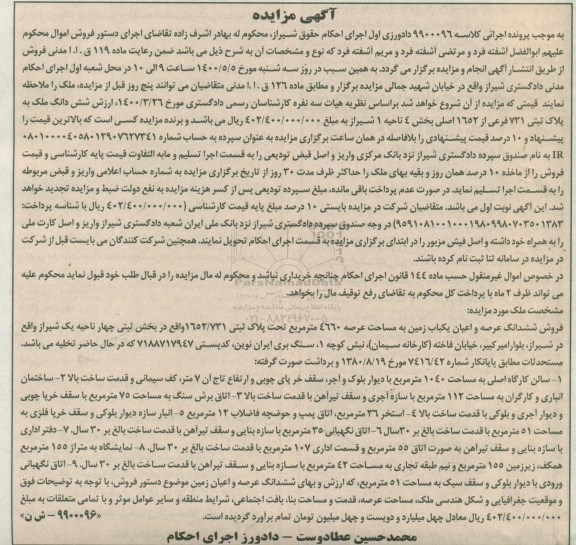 آگهی مزایده
به موجب پرونده اجرائی کلاسه ۹۹۰۰۰۹۶ دادورزی اول اجرای احکام حقوق شیراز، محکوم له بهادر اشرف زاده تقاضای اجرای دستور فروش اموال محکوم
علیهم ابوالفضل آشفته فرد و مرتضی آشفته فرد و مریم آشفته فرد که نوع و مشخصات آن به شرح ذیل می باشد ضمن رعایت ماده ۱۱۹ ق .ا.ا مدنی فروش
از طریق انتشار آگهی انجام و مزایده برگزار می گردد. به همین سبب در روز سه شنبه مورخ ۱۴۰۰/۵/۵ ساعت ۹ الی ۱۰ در محل شعبه اول اجرای احکام
مدنی دادگستری شیراز واقع در خیابان شهید جمالی مزایده برگزار و مطابق ماده ۱۲۶ ق .ا.ا مدنی متقاضیان می توانند پنج روز قبل از مزایده، ملک را ملاحظه
نمایند قیمتی که مزایده از آن شروع خواهد شد براساس نظریه هیات سه نفره کارشناسان رسمی دادگستری مورخ ۱۴۰۰/۳/۲۶، ارزش شش دانگ ملک به
پلاک ثبتی ۷۳۱ فرعی از ۱۶۵۲ اصلی بخش ۴ ناحیه ۱ شیراز به مبلغ ۴۰۲/۴۰۰/۰۰۰/۰۰۰ ریال می باشد و برنده مزایده کسی است که بالاترین قیمت را
پیشنهاد و ۱۰ درصد قیمت پیشنهادی را بلافاصله در همان ساعت برگزاری مزایده به عنوان سپرده به حساب شماره ۰۸۰۱۰۰۰۰۴۰۵۸۰۱۲۹۰۷۶۲۷۳۴۱
IR به نام صندوق سپرده دادگستری شیراز نزد بانک مرکزی واریز و اصل قبض تودیعی را به قسمت اجرا تسلیم و مابه التفاوت قیمت پایه کارشناسی و قیمت
فروش را از ماخذه ۱۰ درصد همان روز و بقیه بهای ملک را حداکثر ظرف مدت ۳۰ روز از تاریخ برگزاری مزایده به شماره حساب اعلامی واریز و قبض مربوطه
را به قسمت اجرا تسلیم نماید. در صورت عدم پرداخت باقی مانده، مبلغ سپرده تودیعی پس از کسر هزینه مزایده به نفع دولت ضبط و مزایده تجدید خواهد
شد. این آگهی نوبت اول می باشد. متقاضیان شرکت در مزایده بایستی ۱۰ درصد مبلغ پایه قیمت کارشناسی (۴۰۲/۴۰۰/۰۰۰/۰۰۰ ریال با شناسه پرداخت:
۹۵۹۱۰۸۱۰۰۱۰۰۰۱۹۸۰۹۹۸۰۷۰۳۵۰۱۳۸۳) در وجه صندوق سپرده دادگستری شیراز نزد بانک ملی ایران شعبه دادگستری شیراز واریز و اصل کارت ملی
را به همراه خود داشته و اصل فیش مزبور را در ابتدای برگزاری مزایده به قسمت اجرای احکام تحویل نمایند. همچنین شرکت کنندگان می بایست قبل از شرکت
در مزایده در سامانه ثنا ثبت نام کرده باشند.
در خصوص اموال غیرمنقول حسب ماده ۱۴۴ قانون اجرای احکام چنانچه خریداری نباشد و محکوم له مال مزایده را در قبال طلب خود قبول نماید محکوم علیه
می تواند ظرف ۲ ماه با پرداخت کل محکوم به تقاضای رفع توقیف مال را بخواهد.
مشخصات ملک مورد مزایده:
فروش ششدانگ عرصه و اعیان یکباب زمین به مساحت عرصه ۴۶۶۰ مترمربع تحت پلاک ثبتی ۱۶۵۲/۷۳۱واقع در بخش ثبتی چهار ناحیه یک شیراز واقع
در شیراز، بلوار امیرکبیر، خیابان فاخته (کارخانه سیمان)، نبش کوچه ۱، سنگ بری ایران نوین، کدپستی ۷۱۸۸۷۱۷۹۴۷ که در حال حاضر تخلیه می باشد.
مستحدثات مطابق پایانکار شماره ۷۴۱۶/۴۲ مورخ ۱۳۸۰/۸/۱۹ و برداشت صورت گرفته:
۱- سالن کارگاه اصلی به مساحت ۱۰۴۰ مترمربع با دیوار بلوک و آجر، سقف خر پای چوبی و ارتفاع تاج آن ۷ متر، کف سیمانی و قدمت ساخت بالا ۲- ساختمان
انباری و کارگران به مساحت ۱۱۲ مترمربع با سازه آجری و سقف تیرآهن با قدمت ساخت بالا ۳- اتاق برش سنگ به مساحت ۷۵ مترمربع با سقف خرپا چوبی
و دیوار آجری و بلوکی با قدمت ساخت بالا ۴- استخر ۳۶ مترمربع، اتاق پمپ و حوضچه فاضلاب ۱۲ مترمربع ۵- انبار سازه دیوار بلوکی و سقف خرپا فلزی به
مساحت ۵۱ مترمربع با قدمت ساخت بالغ بر ۳۰سال ۶- اتاق نگهبانی ۳۵ مترمربع با سازه بنایی و سقف تیرآهن با قدمت ساخت بالغ بر ۳۰ سال. ۷- دفتر اداری
با سازه بنایی و سقف تیرآهن به صورت اتاق ۵۵ مترمربع و قسمت اداری ۱۰۷ مترمربع با قدمت ساخت بالغ بر ۳۰ سال. ۸- نمایشگاه به متراژ ۱۵۵ مترمربع
همکف، زیرزمین ۱۵۵ مترمربع و نیم طبقه تجاری به مساحت ۴۲ مترمربع با سازه بنایی و سقف تیرآهن با قدمت ساخت بالغ بر ۳۰ سال. ۹- اتاق نگهبانی
ورودی با دیوار بلوکی و سقف سبک به مساحت ۵۱ مترمربع، که ارزش و بهای ششدانگ عرصه و اعیان زمین موضوع دستور فروش، با توجه به توضیحات فوق
و موقعیت جغرافیایی و شکل هندسی ملک، مساحت عرصه، قدمت و مساحت بنا، بافت اجتماعی، شرایط منطقه و سایر عوامل موثر و با تمامی متعلقات به مبلغ
۴۰۲/۴۰۰/۰۰۰/۰۰۰ ریال معادل چهل میلیارد و دویست و چهل میلیون تومان تمام برآورد گردیده است. «۹۹۰۰۰۹۶ - ش ن»
محمدحسین عطادوست - دادورز اجرای احکام